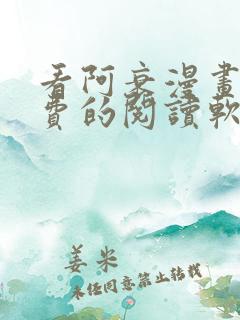 看阿衰漫畫
費的閱讀軟
姜米
未任同意禁止转载